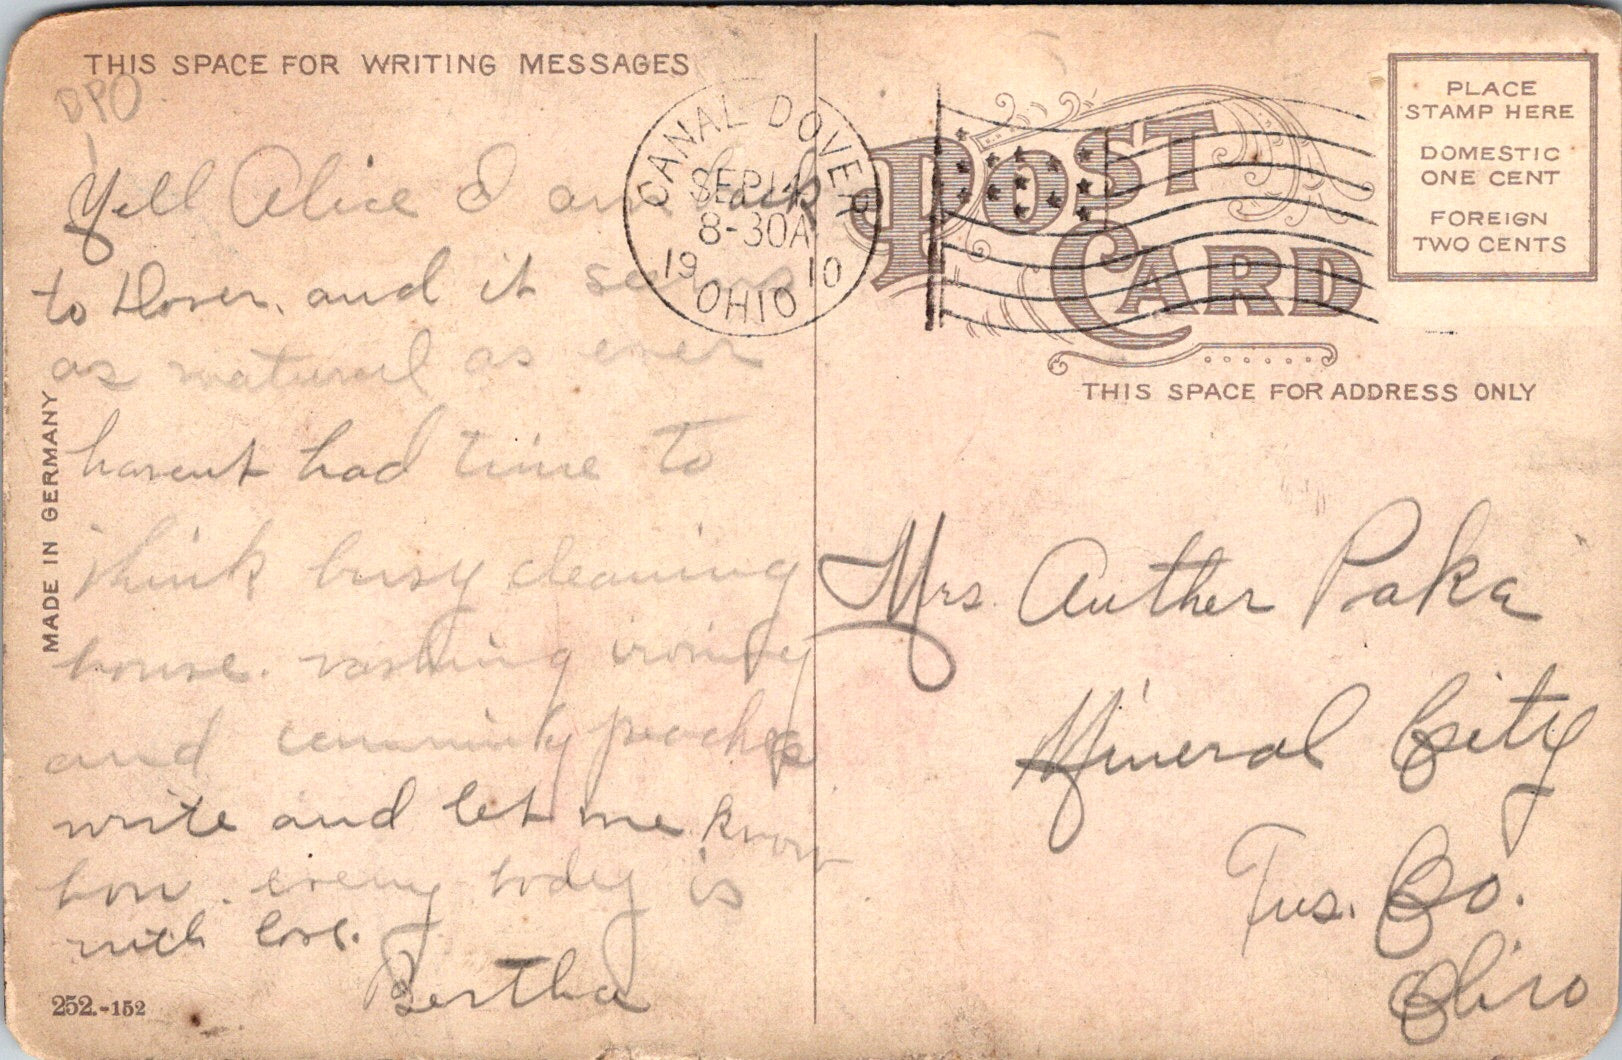 THIS SPACE FOR WRITING MESSAGES
DPO
Yell Alice I am back
to Dover, and it seems
as natural as ever
havent had time to
think busy cleaning
house. washing ironing
and canning peaches
write and let me know
how. every body is
with love.
Bertha
MADE IN GERMANY
252.-152
CANAL DOVER
SEP
8-30A
1910
OHIO
POST
CARD
PLACE
STAMP HERE
DOMESTIC
ONE CENT
FOREIGN
TWO CENTS
THIS SPACE FOR ADDRESS ONLY
Mrs. Auther Poke
Mineral City
Tus. Co.
Ohio